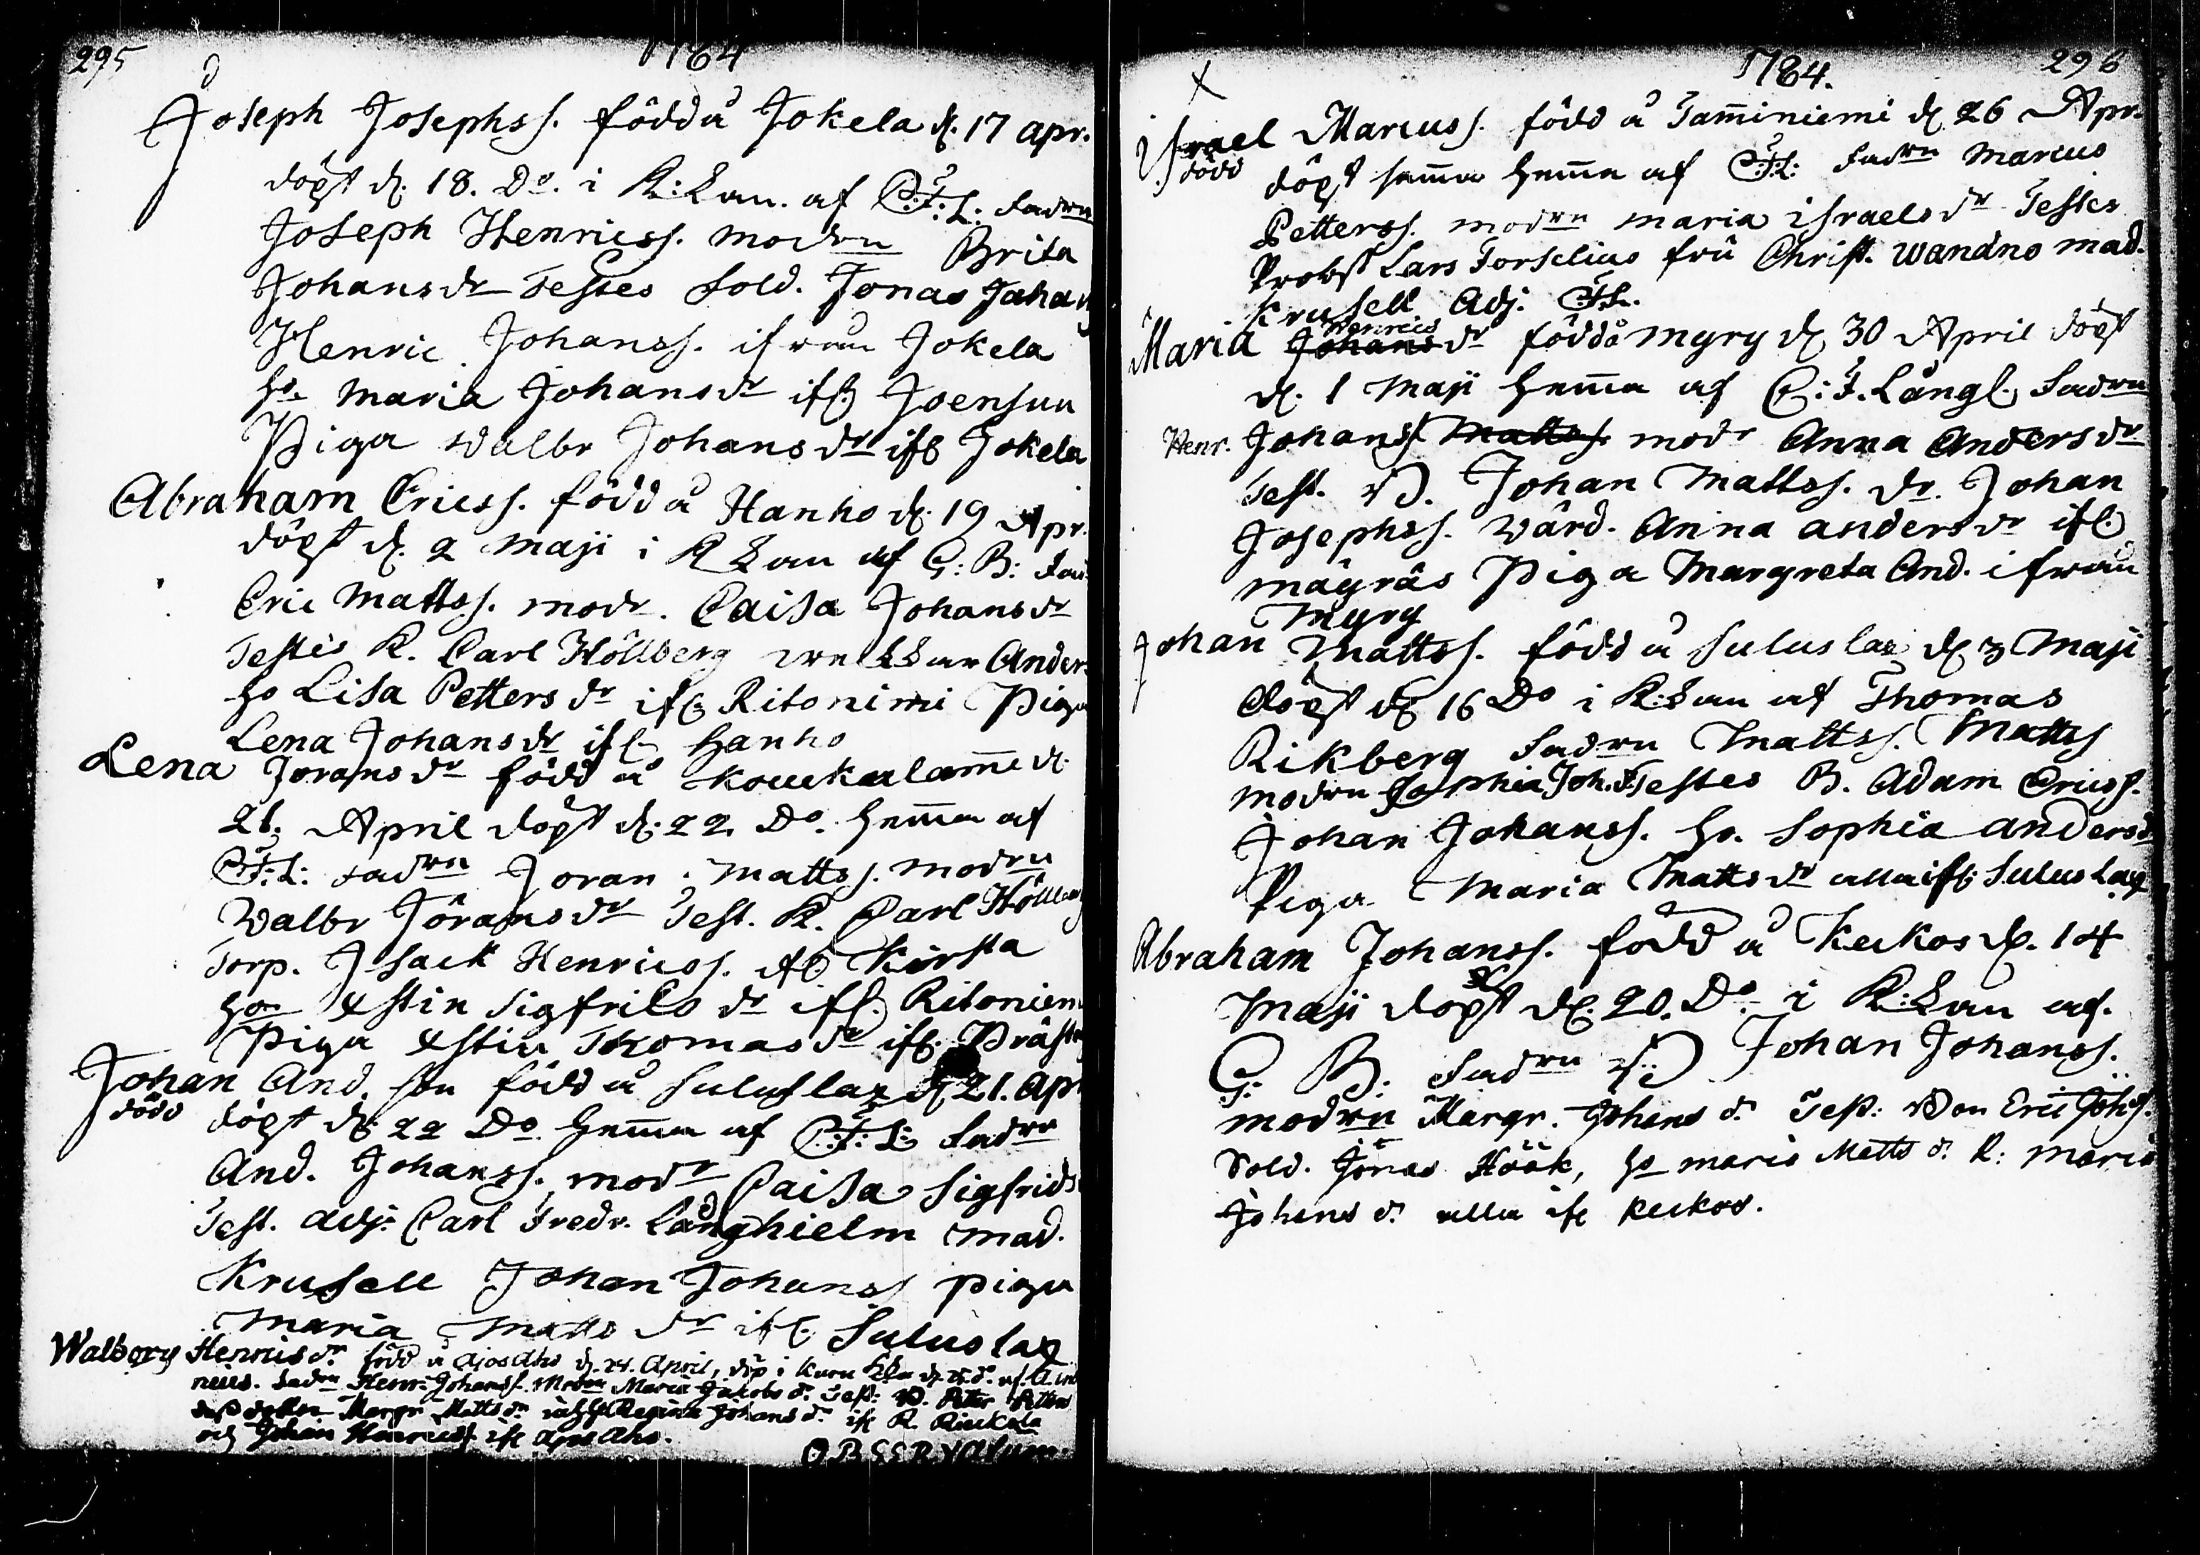 295
1784
Joseph Josephss. född å Jokela d. 17 apr.
döpt d. 18. Do. i K: Kan. af C:F:L: fadren
Joseph Henricss. modren Brita
Johansdr Testes Sold. Jonas
Henric Johanss. ifrån Jokela
ho Maria Johansdr ifr Joensuu
Piga Walbr Johansdr ifr Jokela
Abraham Ericss. född å Hanho d. 19 Apr.
döpt d. 2 Maji i K Kan af G: B: fad
Eric Mattss. modr. Caisa Johansdr
Testes K. Carl Höllberg Anders
ho Lisa Pettersdr ifr Ritonimi Piga
Lena Johansdr ifr Hanho
Lena Joransdr född å d.
21. April döpt d. 22. Do. hemma af
C:F:L: fadren Joran Mattss. modren
Walbr Jöransdr Test. K. Carl Höllberg
Torp. Isack Henricss. ifr Kirsta
hon Xstin Sigfridsdr ifr. Ritoniem
Piga Xstin Thomasdr ifr Präst
Johan And. son född å Suluslax d. 21. Apr
död döpt d. 22 Do. hemma af C:F:L: fadren
And. Johanss. modr Caisa Sigfrids
Test. adj: Carl Fredr. Långhielm mad.
Krusell Johan Johanss piga
Maria Mattsdr ifr Suluslax
Walborg Henricsdr född å Ajos Aho d. April, döp i
fadren Henr: Johanss. Modren Maria Jakobsdr. Test: Petter
Margr Mattsdr Regina Johansdr ifr K.
och Johan Henricss ifr Ajos Aho.
OBSERVATUM
1784.
296
X
Israel Marcuss. född å Tamminiemi d. 26 Apr.
död döpt samma hemma af C:F:L: fadren Marcus
Petterss. modren Maria Israelsdr Testes
Probst Lars Forselius fru Christ. Wandno mad.
Krusell Adj. CFL.
Maria Johans Henrics dr född å Myry d. 30 April döpt
d. 1 Maji hemma af C: F. Långl. fadren
Henr. Johanss Mattss. modr Anna Andersdr
Test. B. Johan Mattss. dr. Johan
Josephss. Wärd. Anna andersdr ifr
Mäyräs Piga Margreta And. ifrån
Myry
Johan Mattss. född å Suluslax d. 3 Maji
döpt d. 16 Do i K: Kan af Thomas
Rikberg fadren Mattss. Matts
modren Sophia Joh.d Testes B. Adam Ericss.
Johan Johanss. ho. Sophia andersd
Piga Maria Mattsdr alla ifr Suluslax
Abraham Johanss. född å Keckos d. 14
Maji döpt d. 20. Do. i K: Kan af.
G: B: fadren B Johan Johanss.
modren Margr. Johansdr. Test: Bon Eric Johss.
Sold. Jonas Höök, ho Maria Mattsdr. P: Maria
Johansdr. alla ifr Keckos.